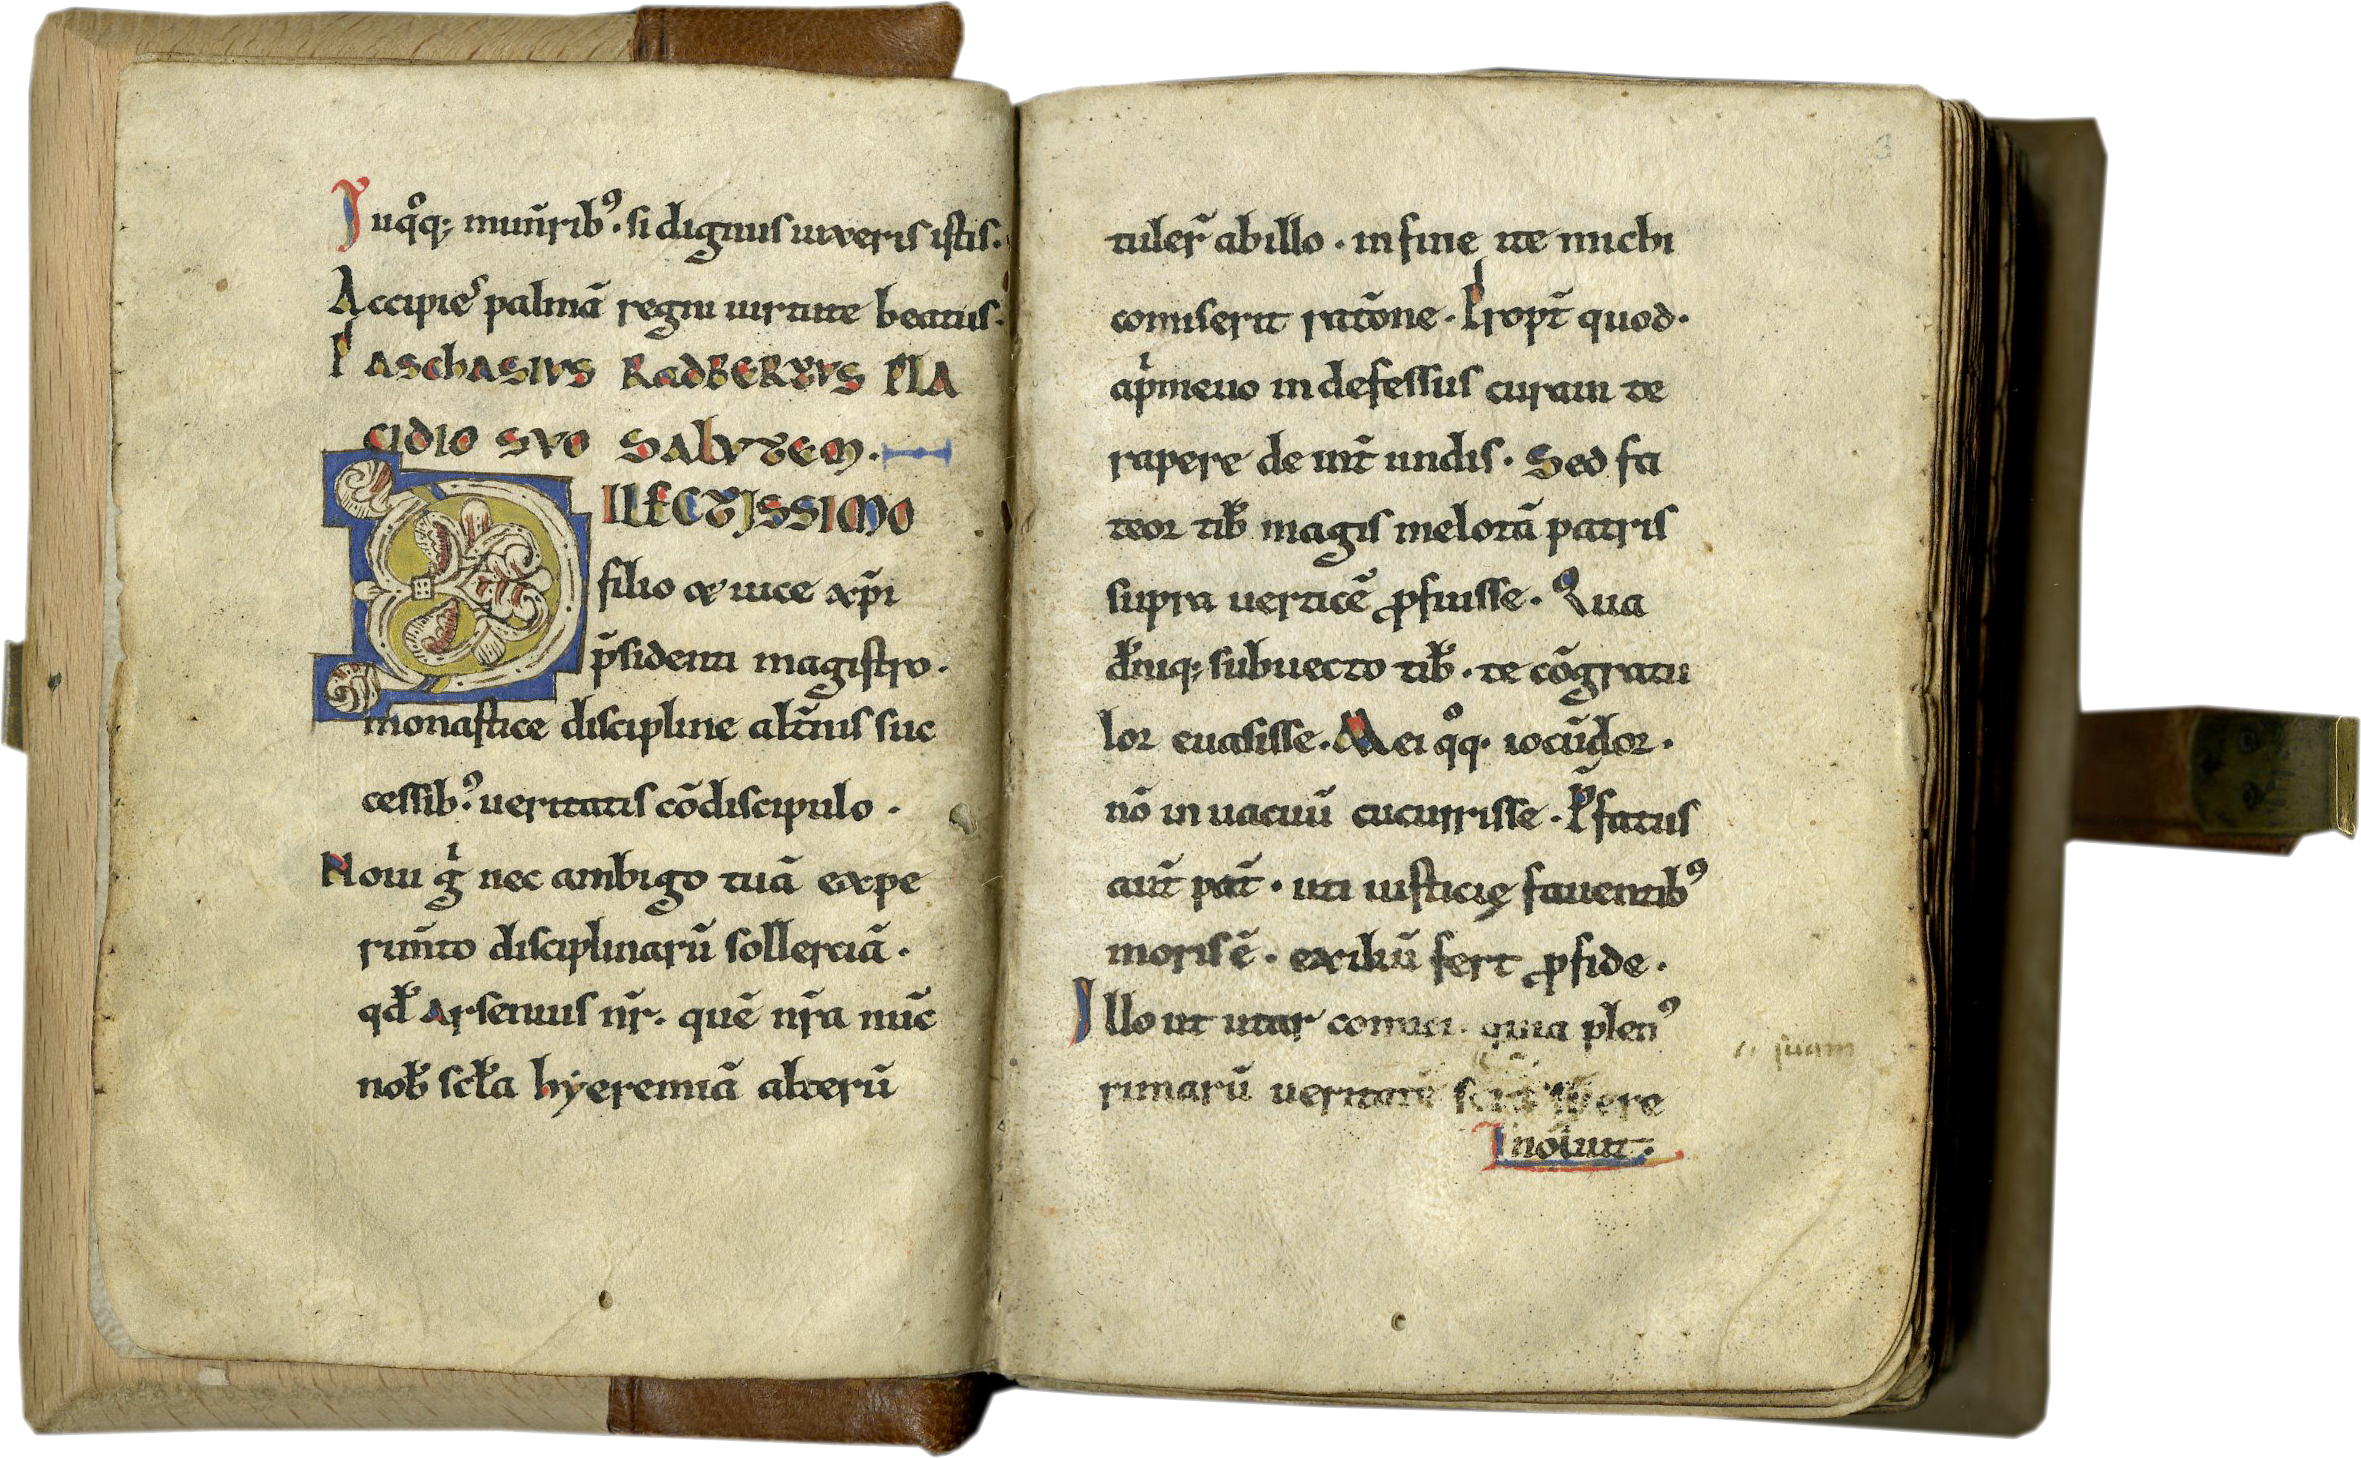 Juqͦq; mun̄rib⁹. si dignus iuxeris istis.
Accipieˢ palmā regni uirtute beatus.
PASChASIVS RAdBERTVS PLA
CIDIO SVO SALVTEM.
DILECTISSIMO
filio & uice xp̄i
p̄sidenti magistro.
monastice discipline alt̄nis suc
cessib⁹. ueritatis cōdiscipulo.
Noui gͥ nec ambigo tuā expe
rim̄to disciplinarū sollerciā.
qđ Arsenius nr̄. quē nr̄a nūc
nob̄ scłа hyeremiā alterū
tuler̄ abillo. in fine ite michi
comiserit ratōne. Propt̄ quod.
apͥmeuo indefessus curam te
rapere de int̄ undis. Sed fa
teor tib̄ magis melotā patris
supra uerticē ꝓfuisse. Qua
đniq; subuecto tib̄. te cōgratu
lor euasisse. Mei qͦq. iocūdor.
nō in uacuū cucurrisse. P̄fatus
aut̄ pat̄. uti iusticię fauentib⁹
moris ē. exiliū fert ꝓfide.
Illo ut utar comuni. quia plen⁹
rimarū ueritatē
Inōtuit.